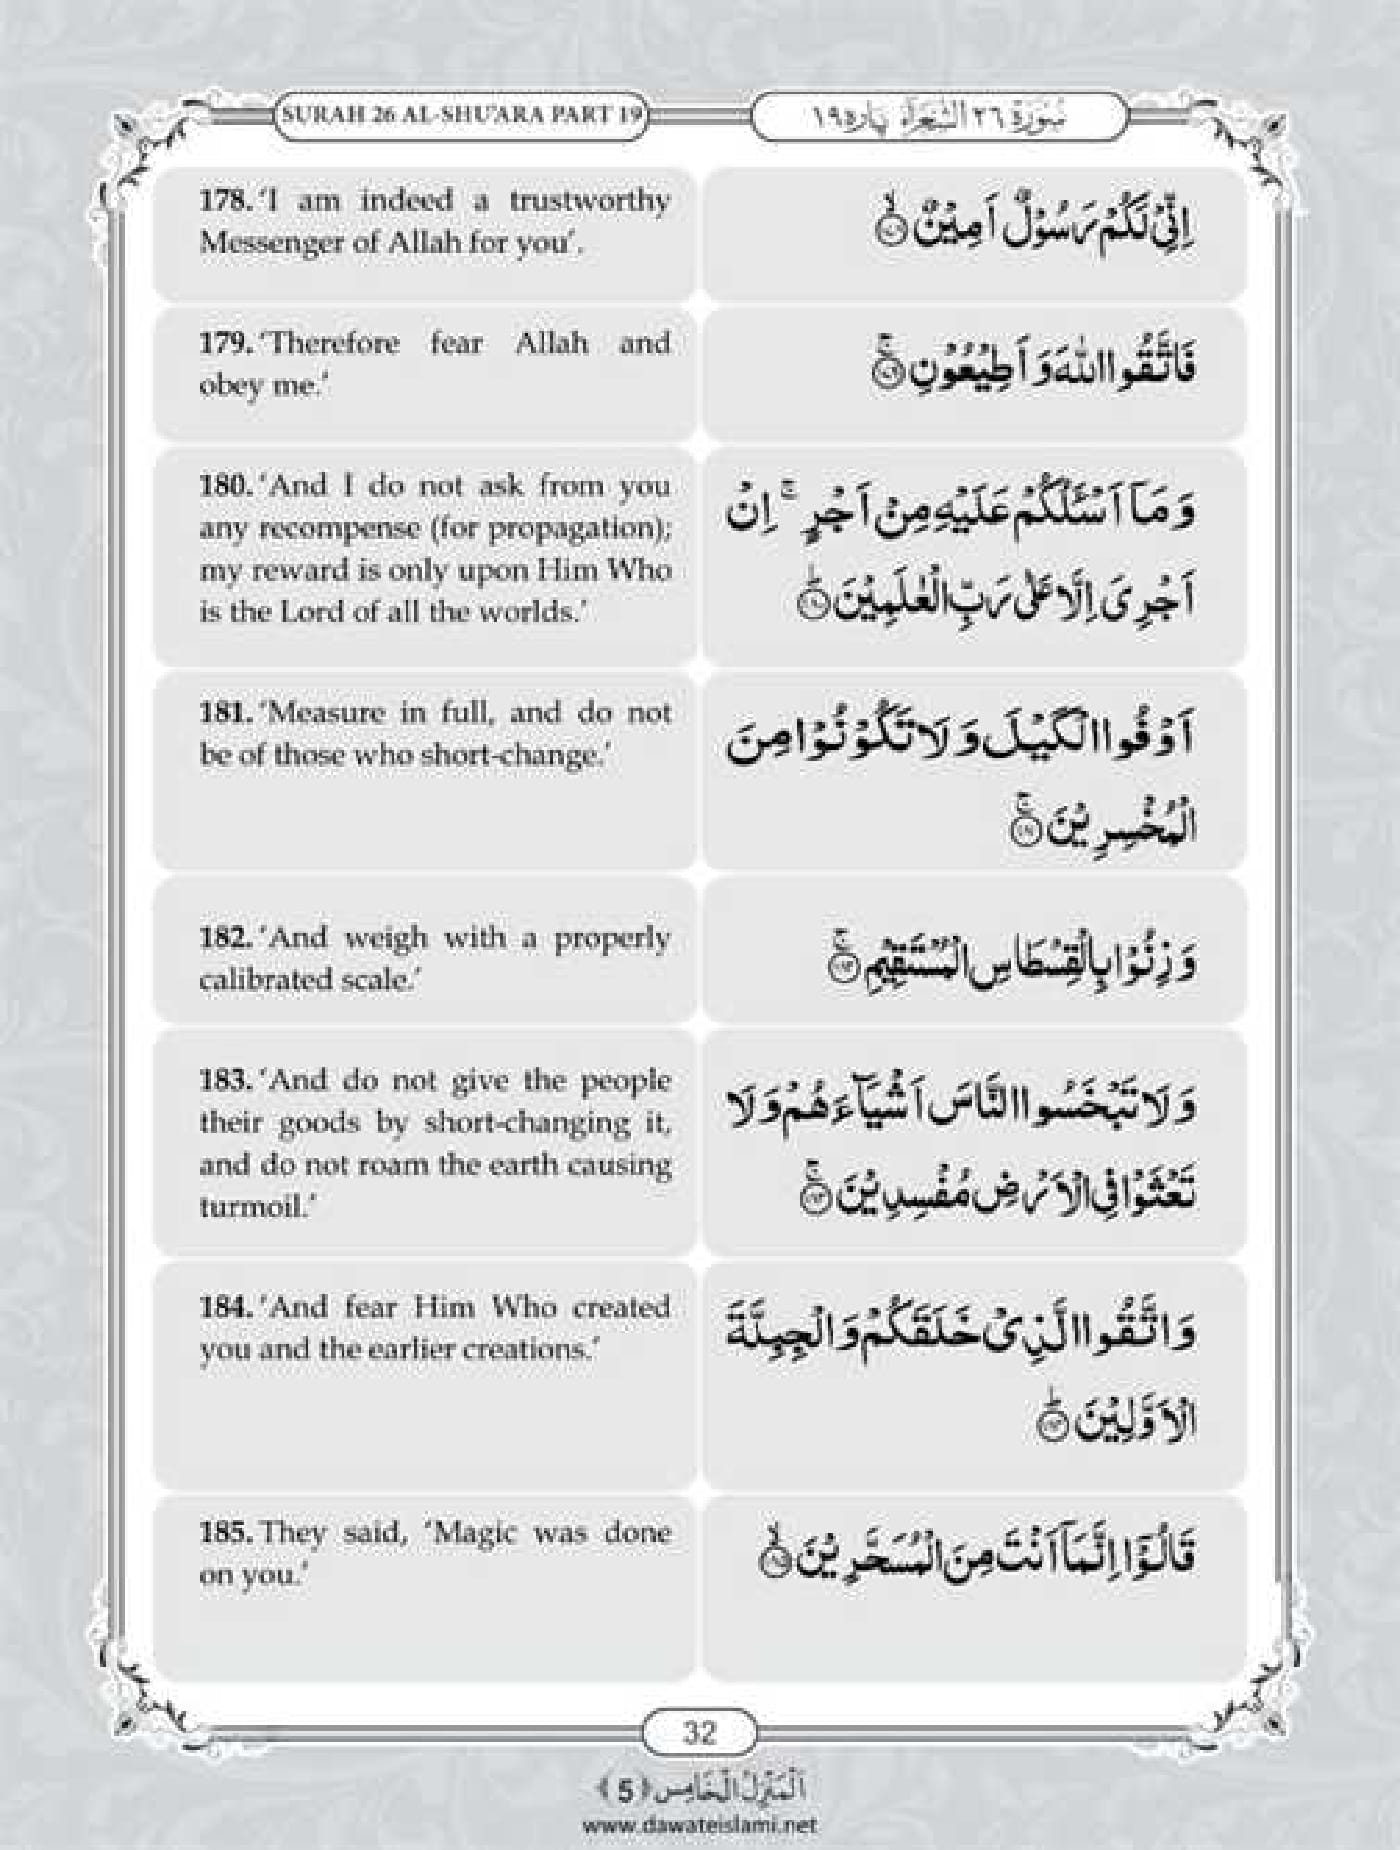 SURAH 26 AL-SHU'ARA PART 19
سُوْرَةُ ٢٦ الشُّعَرَآءِ پارہ ١٩
178. 'I am indeed a trustworthy
Messenger of Allah for you'.
اِنِّیْ لَكُمْ رَسُوْلٌ اَمِیْنٌ ۙ﴿۱۷۸﴾
179. 'Therefore fear Allah and
obey me.'
فَاتَّقُوا اللّٰهَ وَ اَطِیْعُوْنِ ۚ﴿۱۷۹﴾
180. 'And I do not ask from you
any recompense (for propagation);
my reward is only upon Him Who
is the Lord of all the worlds.'
وَ مَاۤ اَسْــٴَـلُكُمْ عَلَیْهِ مِنْ اَجْرٍ ۚ اِنْ
اَجْرِیَ اِلَّا عَلٰی رَبِّ الْعٰلَمِیْنَ ؕ﴿۱۸۰﴾
181. 'Measure in full, and do not
be of those who short-change.'
اَوْفُوا الْكَیْلَ وَ لَا تَكُوْنُوْا مِنَ
الْمُخْسِرِیْنَ ۚ﴿۱۸۱﴾
182. 'And weigh with a properly
calibrated scale.'
وَ زِنُوْا بِالْقِسْطَاسِ الْمُسْتَقِیْمِ ۚ﴿۱۸۲﴾
183. 'And do not give the people
their goods by short-changing it,
and do not roam the earth causing
turmoil.'
وَ لَا تَبْخَسُوا النَّاسَ اَشْیَآءَهُمْ وَ لَا
تَعْثَوْا فِی الْاَرْضِ مُفْسِدِیْنَ ۚ﴿۱۸۳﴾
184. 'And fear Him Who created
you and the earlier creations.'
وَ اتَّقُوا الَّذِیْ خَلَقَكُمْ وَ الْجِبِلَّةَ
الْاَوَّلِیْنَ ؕ﴿۱۸۴﴾
185. They said, 'Magic was done
on you.'
قَالُوْۤا اِنَّمَاۤ اَنْتَ مِنَ الْمُسَحَّرِیْنَ ۙ﴿۱۸۵﴾
32
اَلْمَنْزِلُ الْخَامِس ﴿5﴾
www.dawateislami.net